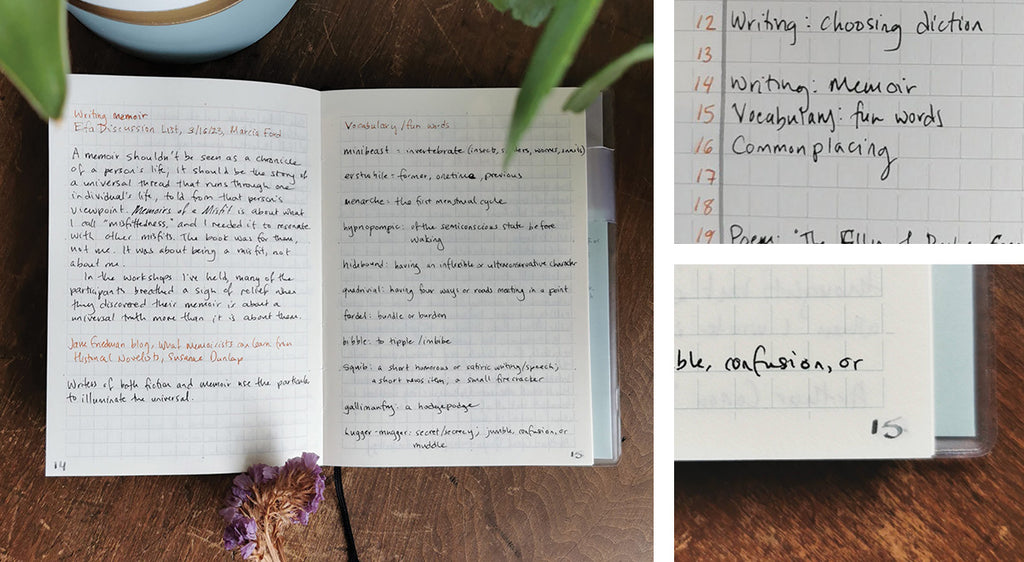 Writing memoir
Efa Discussion List, 3/16/23, Marcia Ford
A memoir shouldn't be seen as a chronicle
of a person's life; it should be the story of
a universal thread that runs through one
individual's life, told from that person's
viewpoint. Memoirs of a Misfit is about what
I call "misfittedness," and I needed it to resonate
with other misfits. The book was for them,
not me. It was about being a misfit, not
about me.
In the workshops I've held, many of the
participants breathed a sigh of relief when
they discovered their memoir is about a
universal truth more than it is about them.
Jane Friedman blog, What memoirists can learn from
Historical Novelists, Susanne Dunlap
Writers of both fiction and memoir use the particular
to illuminate the universal.
14
Vocabulary/fun words
minibeast = invertebrate (insects, spiders, worms, snails)
erstwhile = former, onetime, previous
menarche: the first menstrual cycle
hypnopompic: of the semiconscious state before
waking
hidebound: having an inflexible or ultraconservative character
quadrivial: having four ways or roads meeting in a point
fardel: bundle or burden
bibble: to tipple/imbibe
squib: a short humorous or satiric writing/speech;
a short news item; a small firecracker
gallimaufry: a hodgepodge
hugger-mugger: secret/secrecy; jumble, confusion, or
muddle
15
12 Writing: choosing diction
13
14 Writing: Memoir
15 Vocabulary: fun words
16 Commonplacing
17
18
19 Poem: "The
ble, confusion, or
15